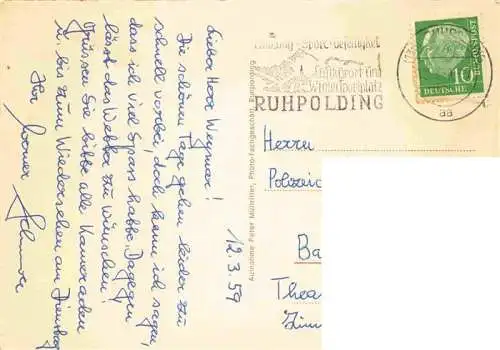 Lieber Herr Wegmar!
Die schönen Tage gehen leider zu
schnell vorbei, doch kann ich sagen,
dass ich viel Spass habe. Dagegen
lässt das Wetter zu wünschen!
Grüssen Sie bitte alle Kameraden
u. bis zum Wiedersehen am Dienstag
Ihr Werner
12.3.59
Aufnahme Peter Müllritter, Photo-Fachgeschäft, Ruhpolding
Luftkurort und
Wintersportplatz
RUHPOLDING
10
DEUTSCHE
BUNDESPOST
aa
Herrn
Polizei
Ba
Thea
Zim